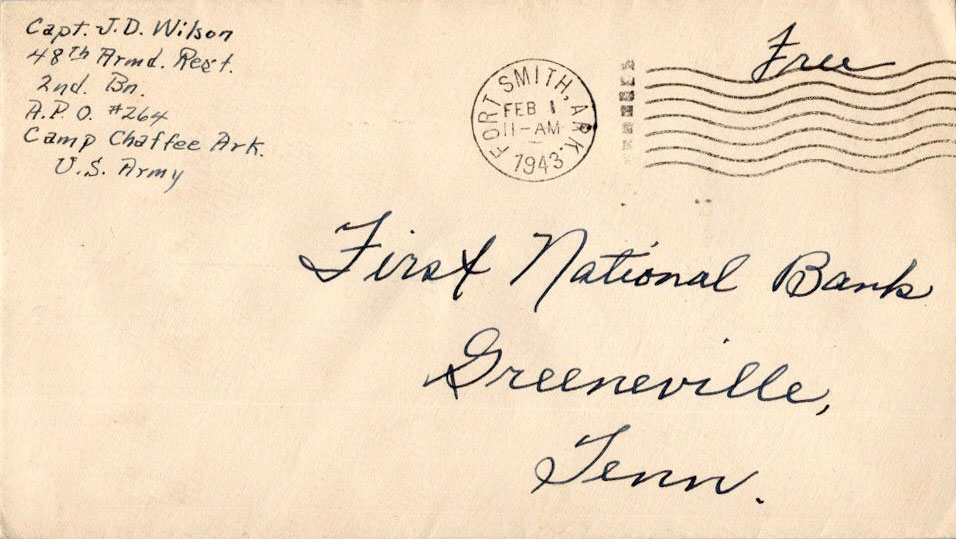 Capt. J.D. Wilson
48th Armd. Regt.
2nd. Bn.
A.P.O. #264
Camp Chaffee Ark.
U.S. Army
FORT SMITH, ARK.
FEB 1
11-AM
1943
Free
First National Bank
Greeneville,
Tenn.